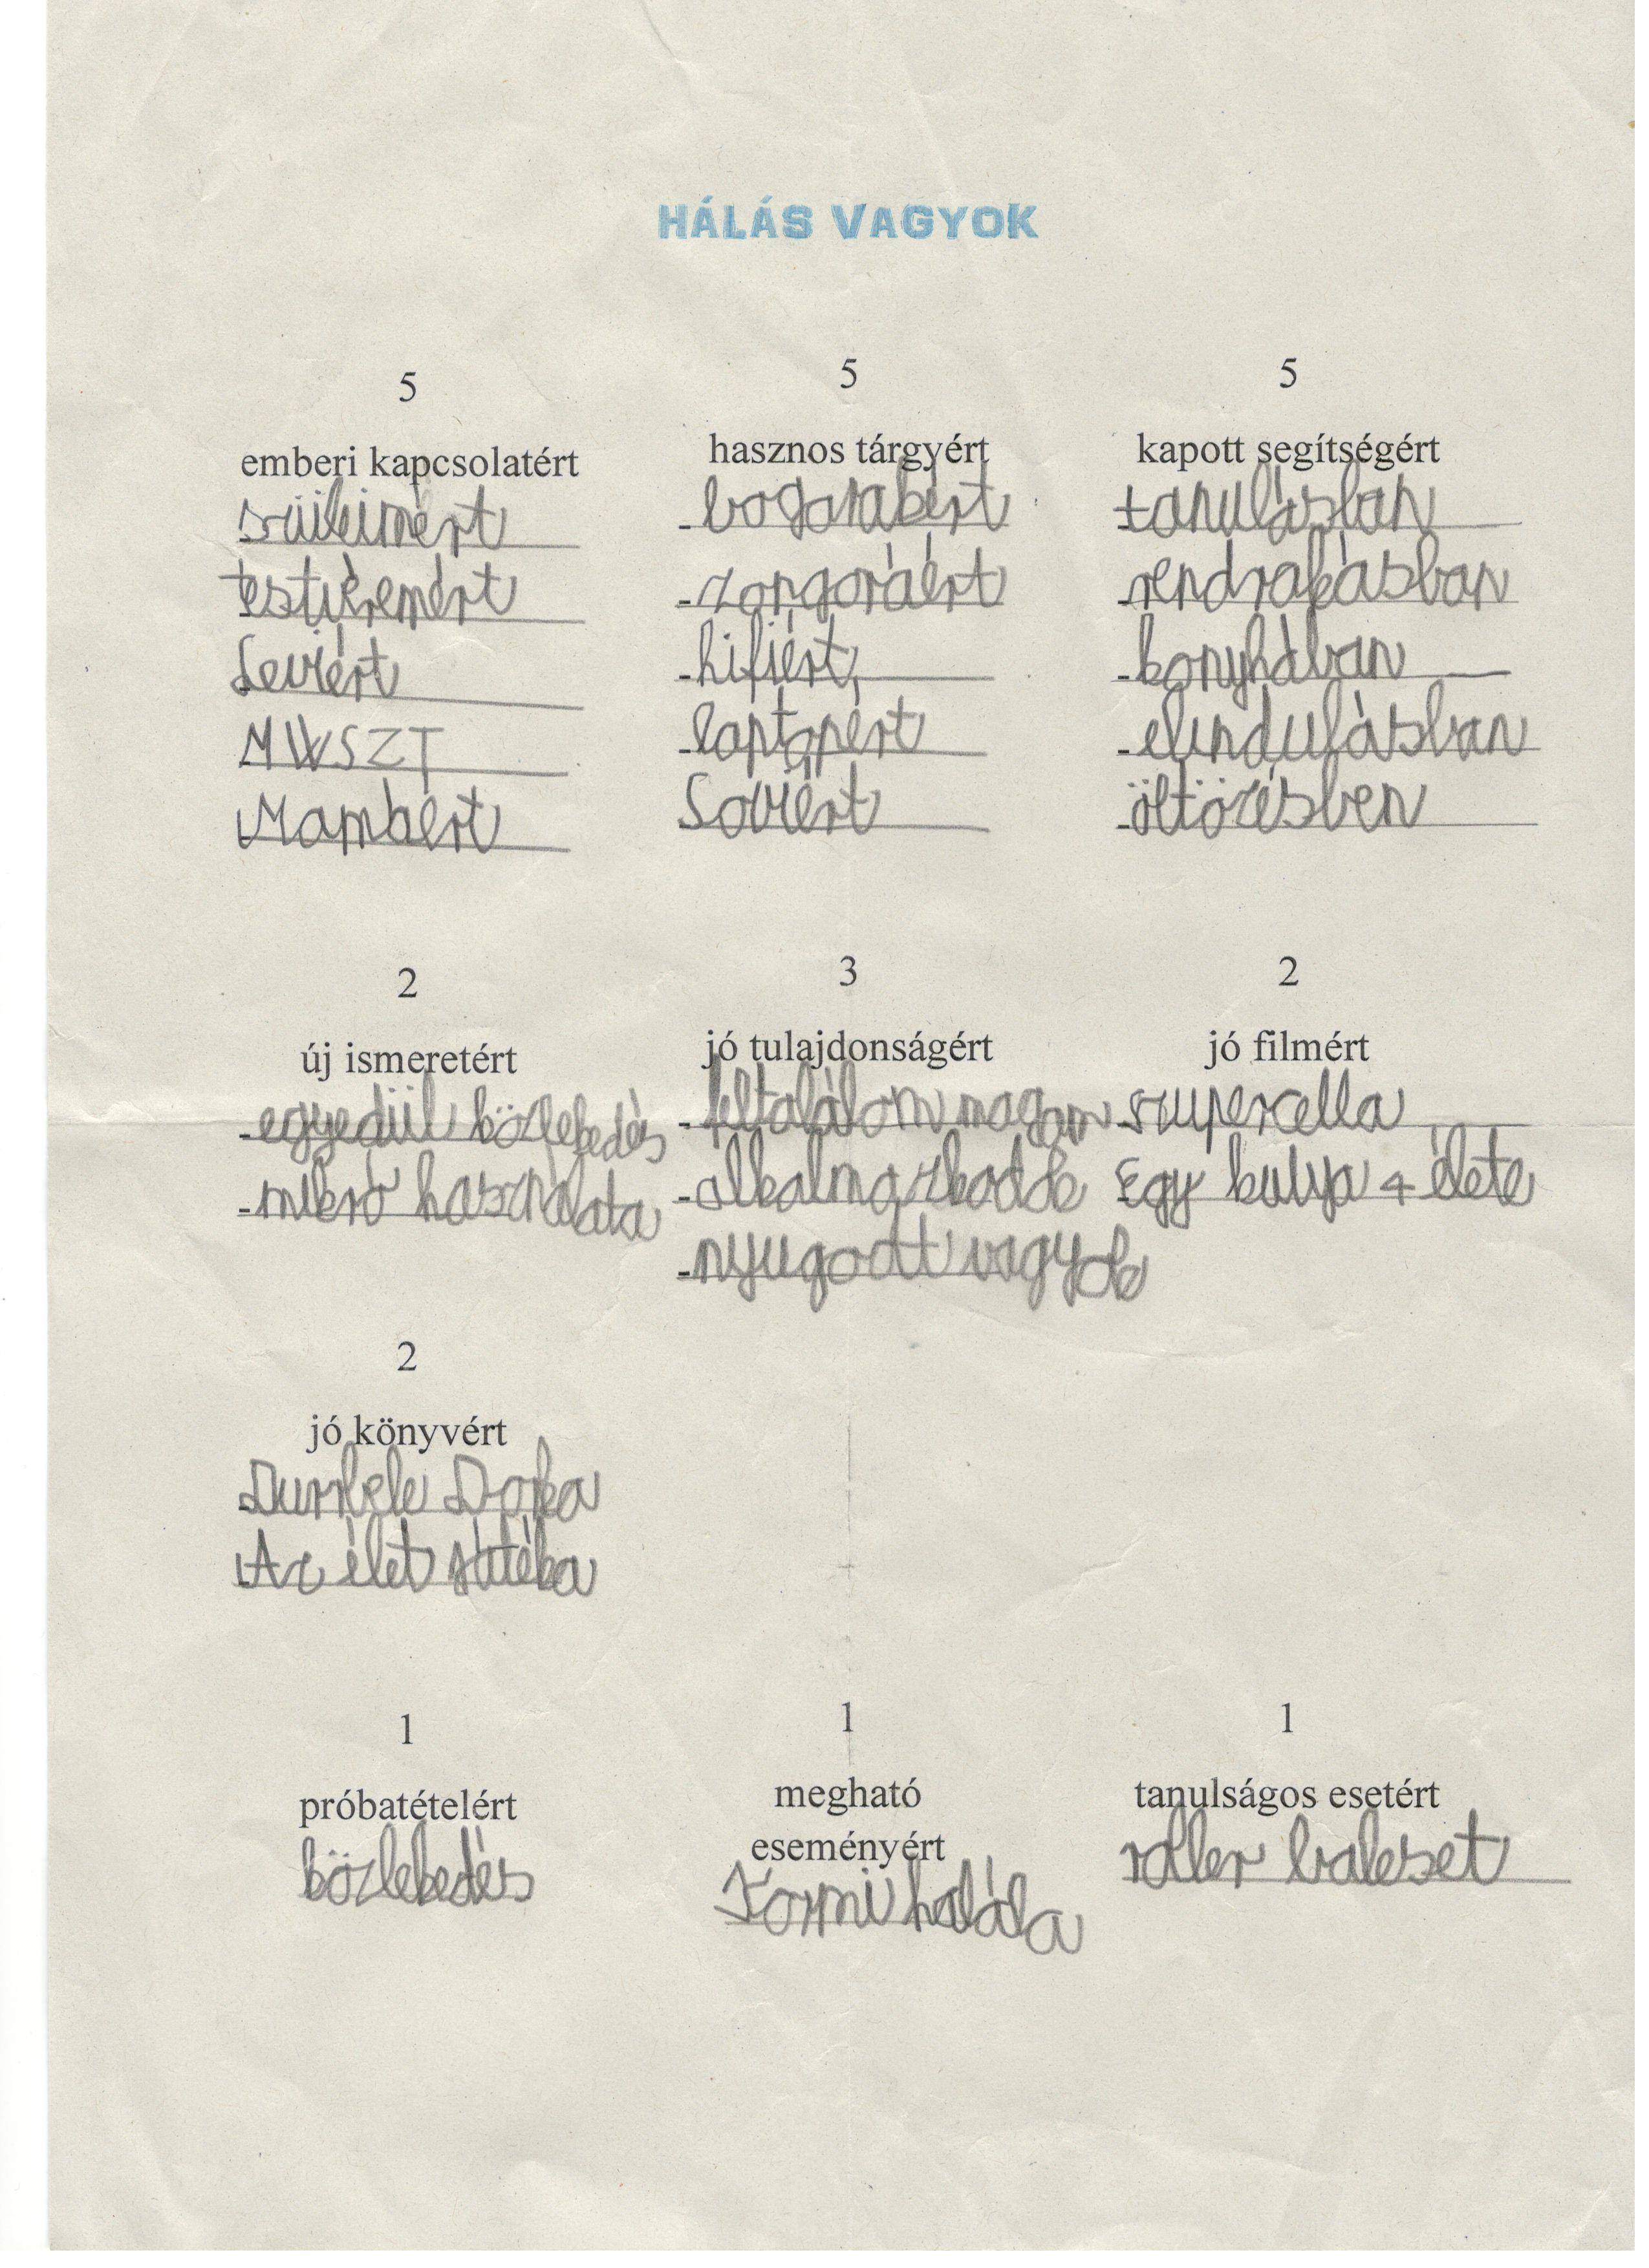 HÁLÁS VAGYOK
5
emberi kapcsolatért
szüleimért
testvéremért
Leviért
MWSZT
Mambért
5
hasznos tárgyért
bogarabért
zongoráért
hifiért,
laptopért
Soviért
5
kapott segítségért
tanulásban
rendrakásban
konyhában
elindulásban
öltözésben
2
új ismeretért
egyedül közlekedés
mikró használata
3
jó tulajdonságért
feltalálom magam
alkalmazkodok
nyugodt vagyok
2
jó filmért
szupercella
Egy kutya 4 élete
2
jó könyvért
Durrbele Dorka
Az élet játéka
1
próbatételért
közlekedés
1
megható
eseményért
Kormi halála
1
tanulságos esetért
roller baleset